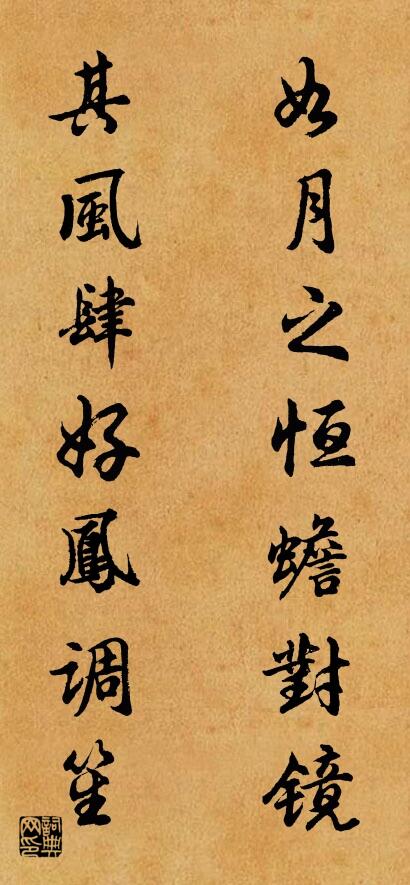 如月之恒蟾對镜
其風肆好鳳调笙
詞典网印